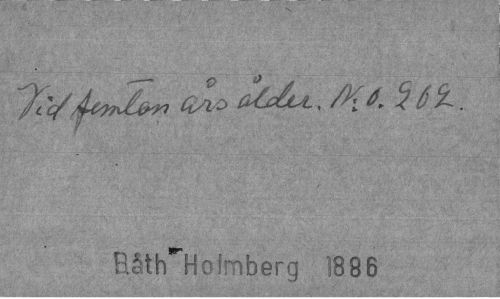 Vid femton års ålder. N:o. 262.
Båth Holmberg 1886